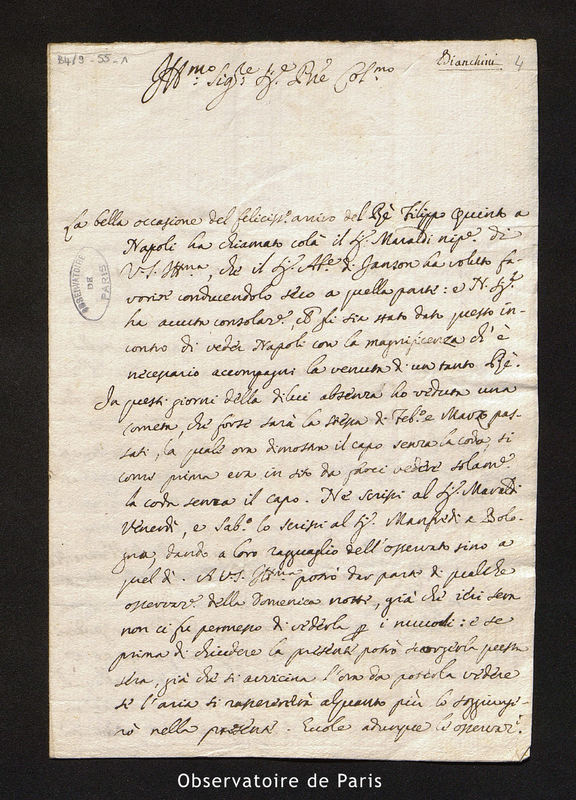 B4/9-55-1
Bianchini 4
Ill.mo Sig.re Sig.re P̃ne Col.mo
La bella occasione del feliciss.o arrivo del Rè Filippo Quinto a
Napoli ha chiamato colà il Sig.r Maraldi nip.e di
V.S. Ill.ma, che il Sig.r di Janson ha voluto fa-
vorire conducendolo seco a quella parte: e N. Sig.re
ha avuta consolaz.e, che gli sia stato dato questo in-
contro di veder Napoli con la magnificenza ch'è
necessario accompagni la venuta di un tanto Rè.
In questi giorni della di lui absenza ho veduta una
cometa, che forse sarà la stessa di Feb.o e Marzo pas-
sati, la quale ora dimostra il capo senza la coda, si
come prima era in sito da farci vedere solam.e
la coda senza il capo. Ne scrissi al Sig.r Maraldi
Venerdì, e Sab.o lo scrissi al Sig.r Manfredi a Bolo-
gna, dando a loro ragguaglio dell'osservato sino a
quel dì. A V.S. Ill.ma potrò dar parte di qualche
osservaz.e della Domenica notte, già che ieri sera
non ci fu permesso di vederla p i nuvoli: e se
prima di chiudere la presente potrò scorgerla questa
sera, già che si avvicina l'ora da poterla vedere
se l'aria si rasserenerà alquanto più lo soggiunge-
rò nella presente. Eccole adunque le osservaz.i
OBSERVATOIRE DE PARIS
Observatoire de Paris